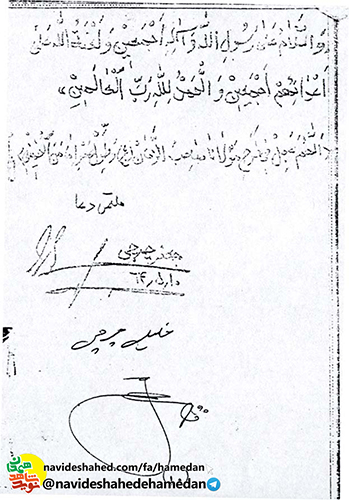 وَالسَّلامُ عَلی رَسُولِ اللّهِ وَآلِهِ اَجْمَعینَ وَلَعْنَةُ اللّهِ عَلی
اَعْدائِهِمْ اَجْمَعینَ وَالْحَمْدُ لِلّهِ رَبِّ الْعالَمینَ»
اللّهُمَّ عَجِّلْ فی فَرَجِ مَوْلانا صاحِبَ الزَّمانْ
ملتمس دعا
جعفر چرچی
۶۴/۱/۱۰
خلیل چرچی
navideshahed.com/fa/hamedan
@navideshahedehamedan